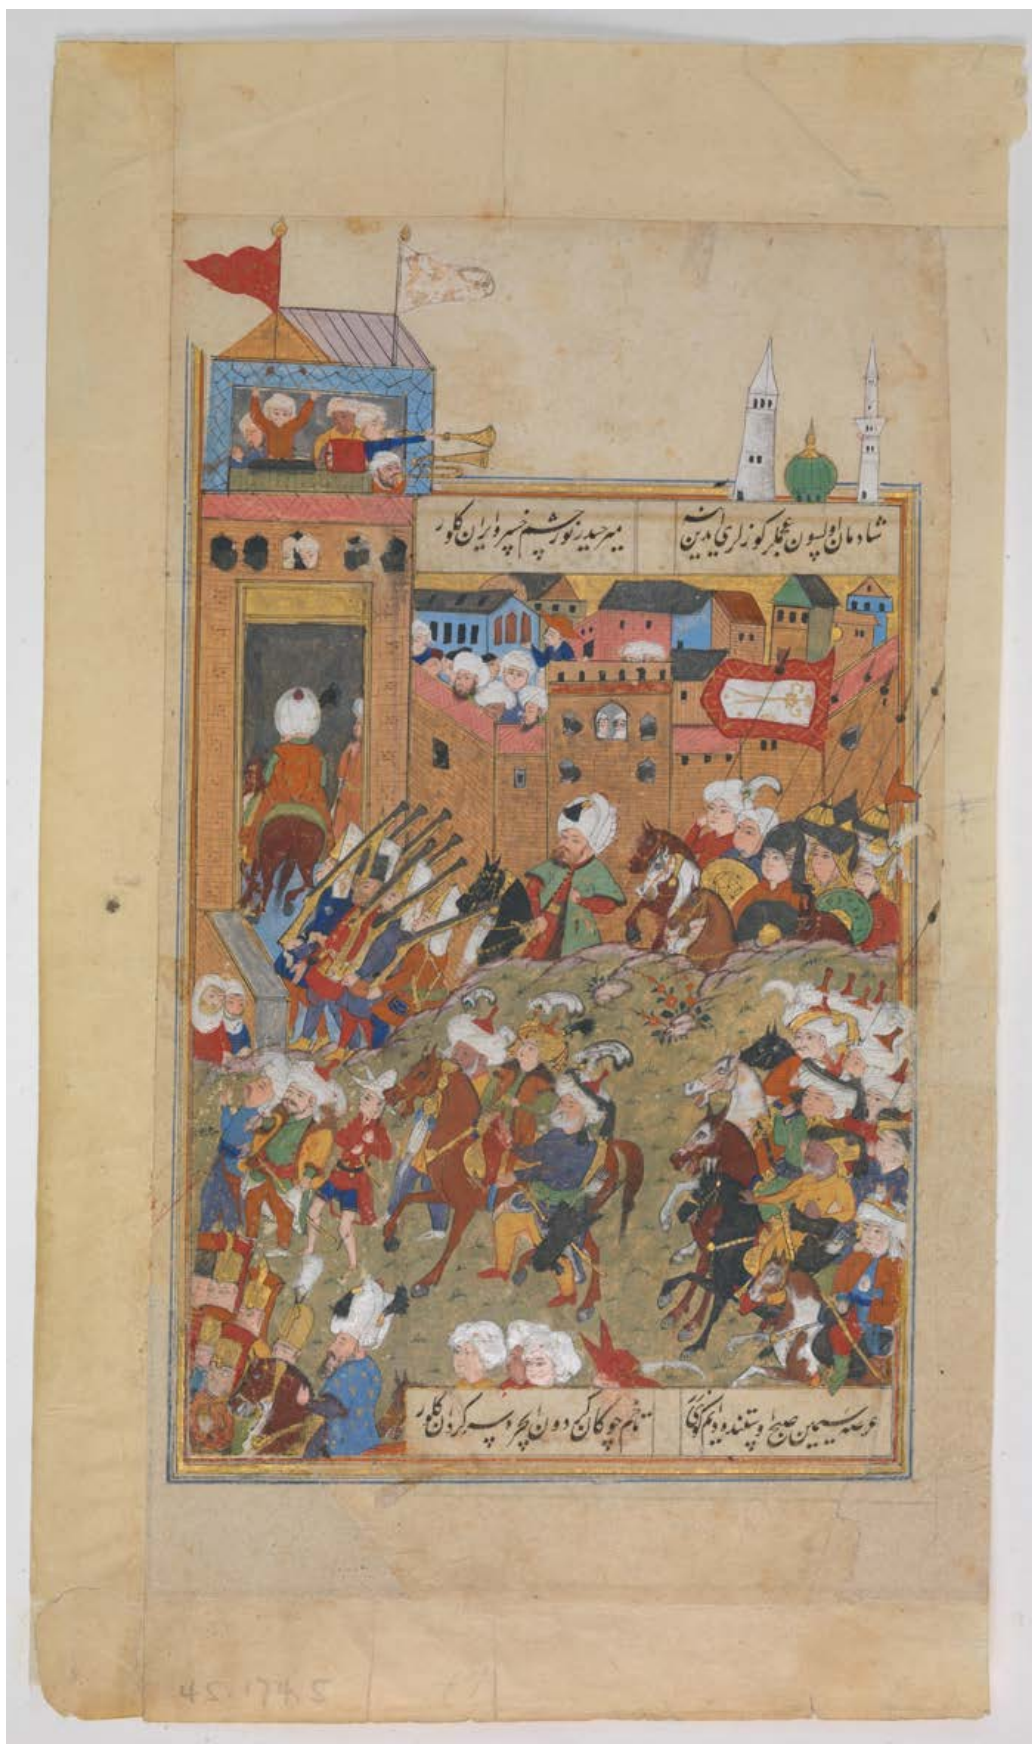 شادمان اولسون عجملر کوزلری ایدین ینه
میر حیدر نور چشم خسرو ایران کلور
عرصه سیمین صبح اوستنده دایم کوی زر
تا خم چوکان کردون ایچره سرکردان کلور
45.174.5